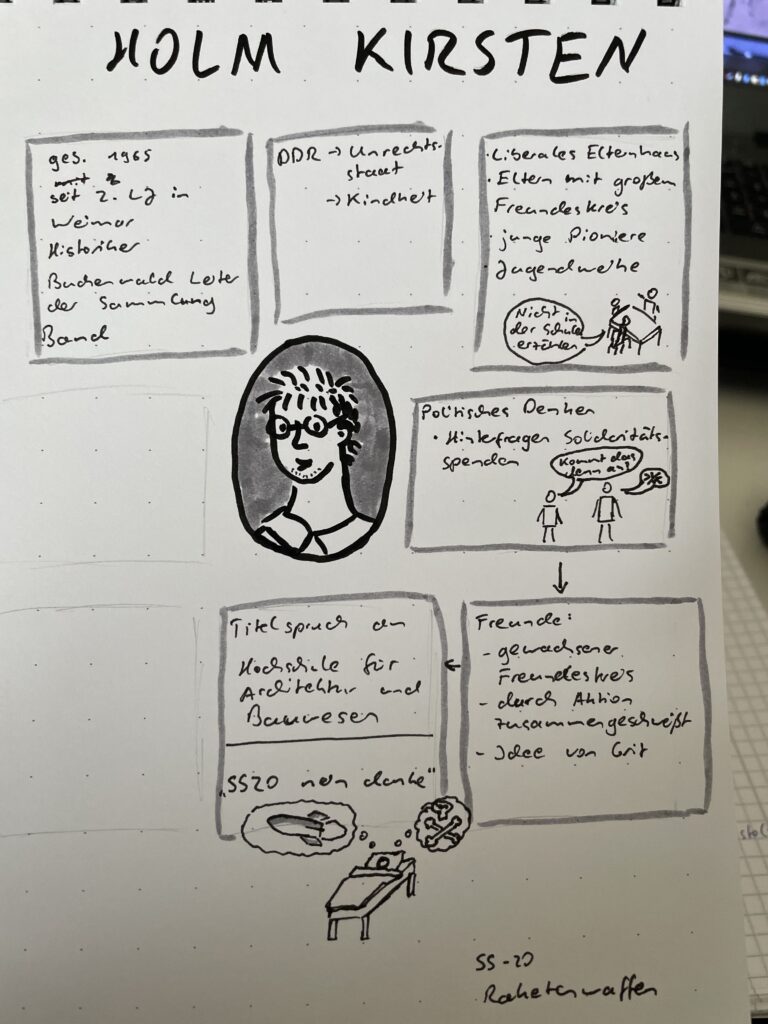 HOLM KIRSTEN
ges. 1965
seit 2. LJ in
Weimar
Historiker
Buchenwald Leiter
der Sammlung
Band
DDR → Unrechts-
staat
→ Kindheit
· Liberales Elternhaus
· Eltern mit großem
Freundeskreis
· junge Pioniere
· Jugendweihe
Nicht in
der Schule
erzählen
Politisches Denken
· Hinterfragen Solidaritäts-
spenden
Kommt das
denn an?
Freunde:
- gewachsener
Freundeskreis
- durch Aktion
zusammengeschweißt
- Idee von Grit
Titelspruch an
Hochschule für
Architektur und
Bauwesen
„SS20 nein danke"
SS-20
Raketenwaffen